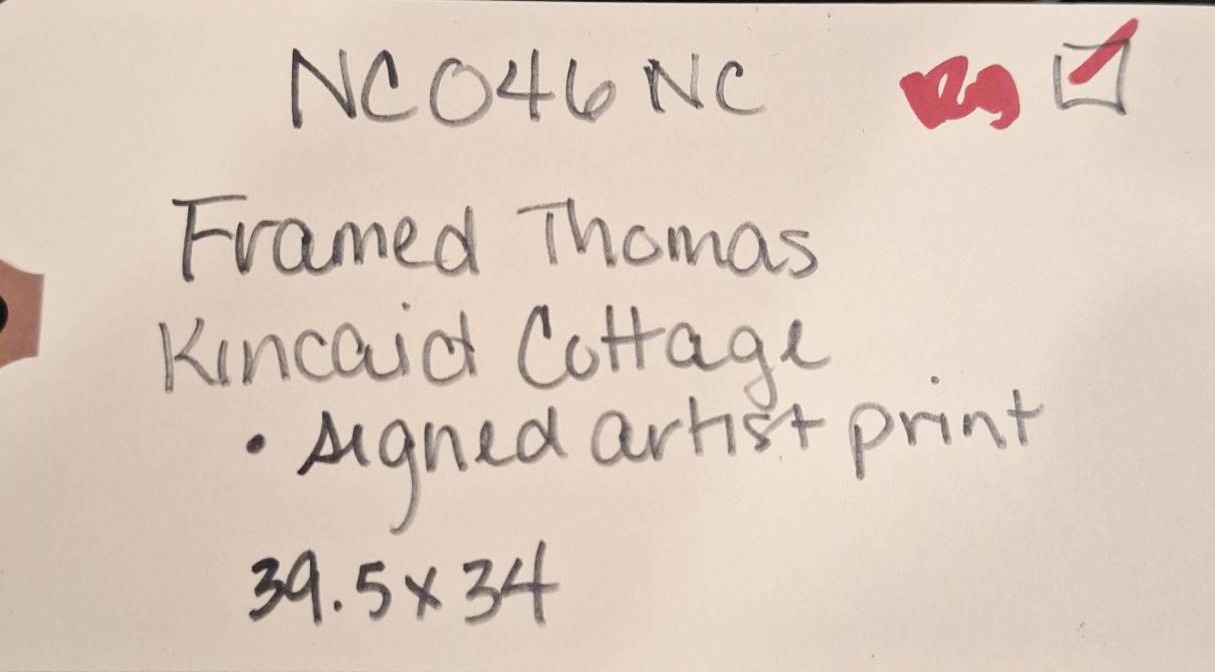 NC046NC
Framed Thomas
Kincaid Cottage
• signed artist print
39.5x34